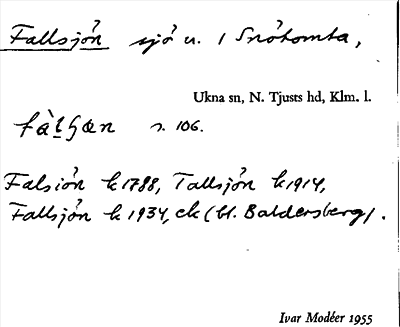 Fallsjön sjö u. / Snötomta,
Ukna sn, N. Tjusts hd, Klm. l.
s. 106.
Falsiön k 1788, Tallsjön k 1914,
Fallsjön k 1934, ek (bl. Baldersberg).
Ivar Modéer 1955